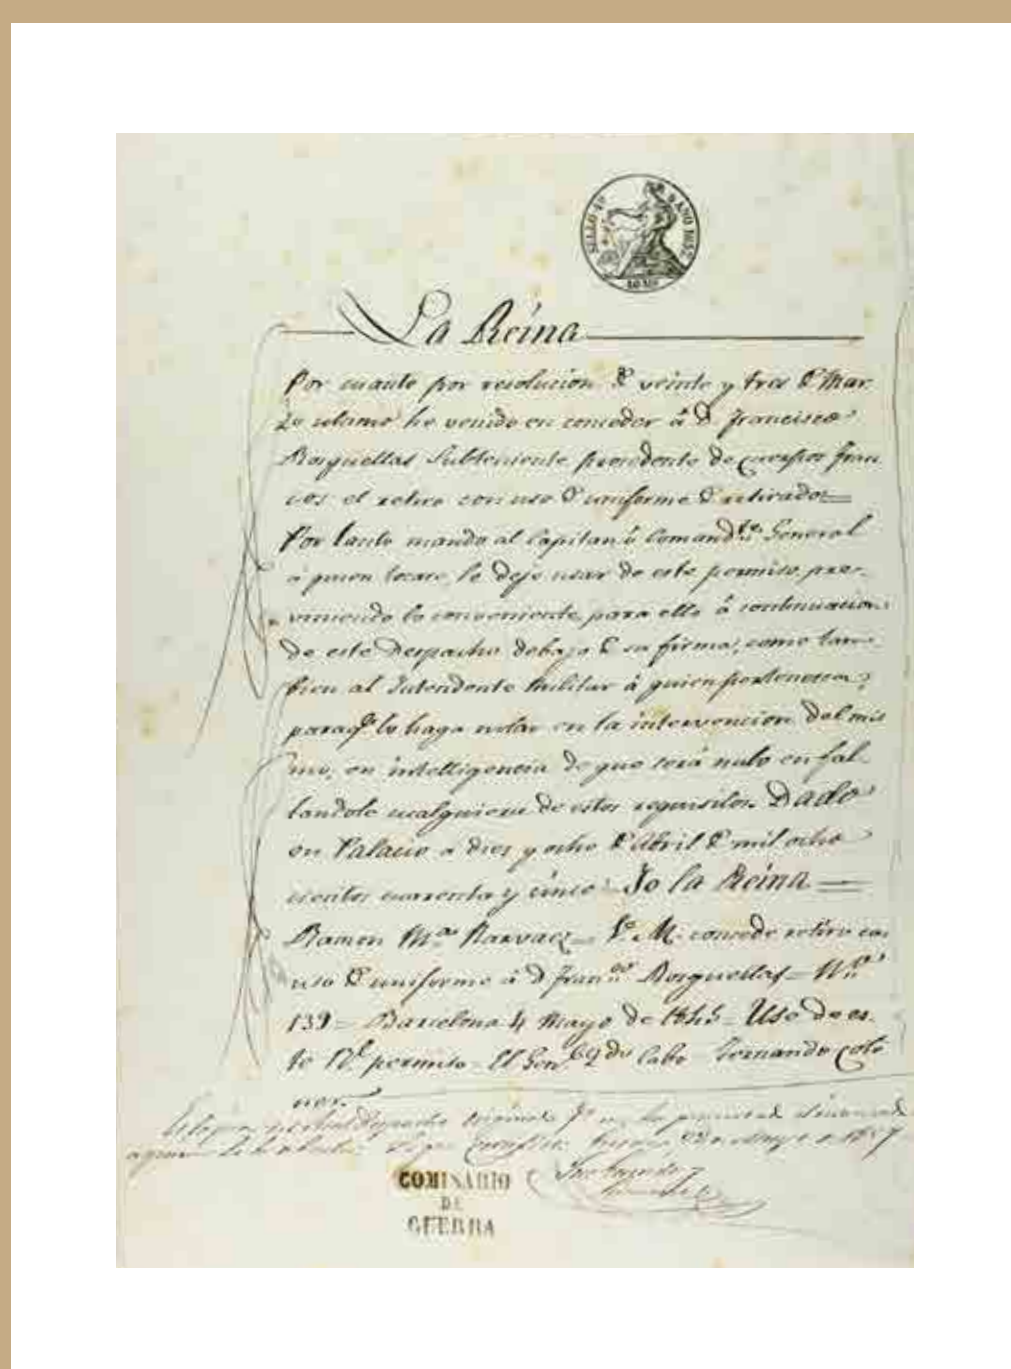 SELLO 4º AÑO 1857
La Reina
Por cuanto por resolucion de veinte y tres de Mar-
zo ultimo he venido en conceder á D. Francisco
Borguellas Subteniente procedente de cuerpos fran-
cos el retiro con uso de uniforme de retirado
Por tanto mando al Capitan ó Comand.te General
á quien tocare, le deje usar de este permiso, pre-
viniendo lo conveniente para ello á continuacion
de este Despacho debajo de su firma, como tam-
bien al Intendente Militar á quien perteneciera,
paraq.e lo haga notar en la intervencion del mis
mo, en inteligencia de que será nulo en fal-
tandole cualquiera de estos requisitos. Dado
en Palacio a diez y ocho de Abril de mil ocho
cientos cuarenta y cinco. Yo la Reina
Ramon M.a Narvaez V. M. concede retiro con
uso de uniforme á D Fran.co Borguellas N.
139 Barcelona 4 Mayo de 1845 Use de es-
te R.l permiso El Gen.l 2º Cabo Fernando Coto
ner
Es copia del Despacho original q.e me ha presentado el interesado
a quien
COMISARIO
DE
GUERRA